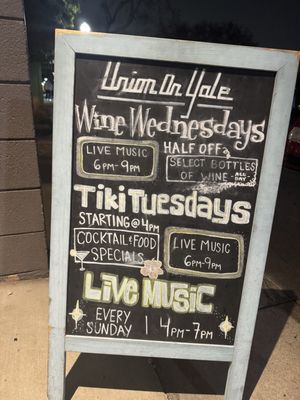 Union On Yale
Wine Wednesdays
LIVE MUSIC
6PM-9PM
HALF OFF
SELECT BOTTLES
OF WINE
ALL
DAY
TIKI TUESDAYS
STARTING @ 4PM
COCKTAIL & FOOD
SPECIALS
LIVE MUSIC
6PM-9PM
LIVE MUSIC
EVERY
SUNDAY
4PM-7PM